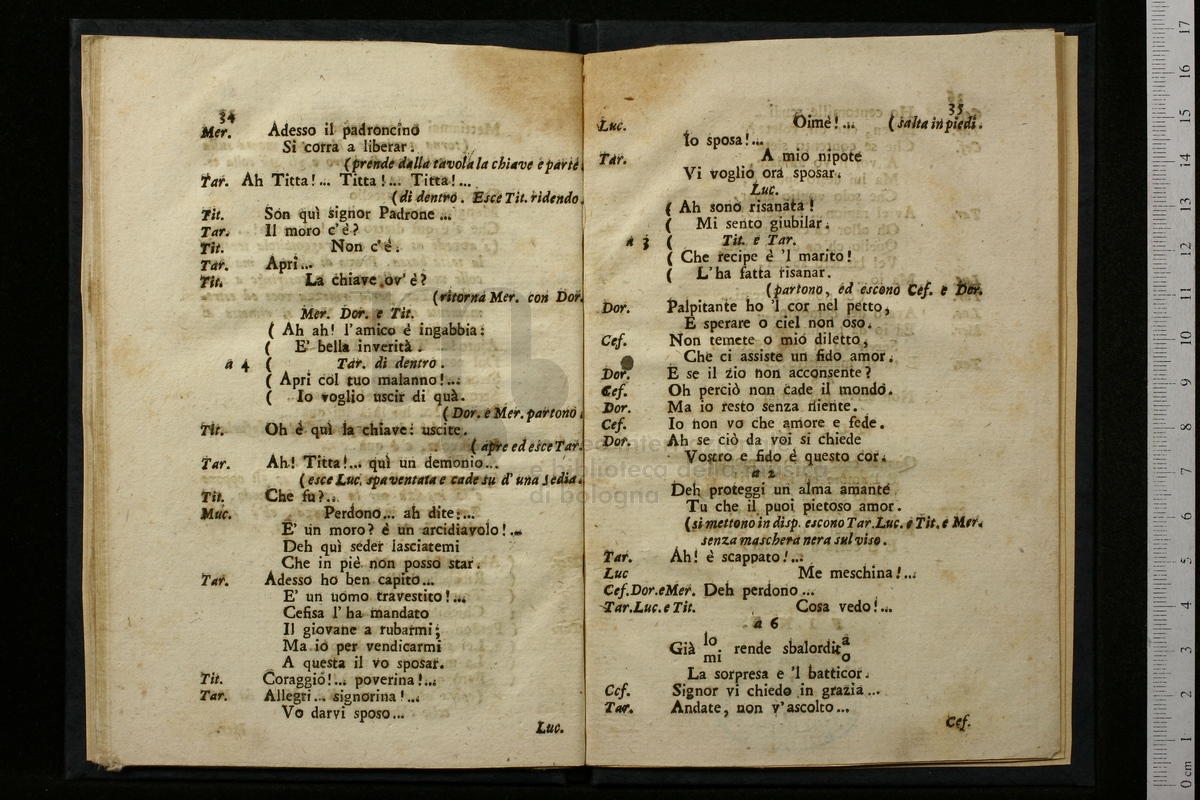 34
Mer. Adesso il padroncino
Si corra a liberar.
(prende dalla tavola la chiave e parte.
Tar. Ah Titta!... Titta!... Titta!...
(di dentro. Esce Tit. ridendo.
Tit. Son quì signor Padrone...
Tar. Il moro c'è?
Tit. Non c'è.
Tar. Apri...
Tit. La chiave ov' è?
(ritorna Mer. con Dor.
Mer. Dor. e Tit.
( Ah ah! l'amico è ingabbia:
( E' bella inverità.
a 4 ( Tar. di dentro.
( Apri col tuo malanno!...
( Io voglio uscir di quà.
(Dor. e Mer. partono.
Tit. Oh è quì la chiave: uscite.
(apre ed esce Tar.
Tar. Ah! Titta!... quì un demonio...
(esce Luc. spaventata e cade su d' una sedia.
Tit. Che fu?..
Muc. Perdono... ah dite:...
E' un moro? è un arcidiavolo!...
Deh quì seder lasciatemi
Che in piè non posso star.
Tar. Adesso ho ben capito...
E' un uomo travestito!...
Cefisa l' ha mandato
Il giovane a rubarmi;
Ma io per vendicarmi
A questa il vo sposar.
Tit. Coraggio!... poverina!...
Tar. Allegri... signorina!...
Vo darvi sposo...
Luc.
35
Luc. Oimè!... (salta in piedi.
Io sposa!...
Tar. A mio nipote
Vi voglio ora sposar.
Luc.
( Ah sono risanata!
( Mi sento giubilar.
a 3 ( Tit. e Tar.
( Che recipe è 'l marito!
( L'ha fatta risanar.
(partono, ed escono Cef. e Dor.
Dor. Palpitante ho 'l cor nel petto,
E sperare o ciel non oso.
Cef. Non temete o mio diletto,
Che ci assiste un fido amor.
Dor. E se il zio non acconsente?
Cef. Oh perciò non cade il mondo.
Dor. Ma io resto senza niente.
Cef. Io non vo che amore e fede.
Dor. Ah se ciò da voi si chiede
Vostro e fido è questo cor.
a 2
Deh proteggi un alma amante
Tu che il puoi pietoso amor.
(si mettono in disp. escono Tar. Luc. e Tit. e Mer.
senza maschera nera sul viso.
Tar. Ah! è scappato!...
Luc Me meschina!...
Cef. Dor. e Mer. Deh perdono...
Tar. Luc. e Tit. Cosa vedo!...
a 6
Già lo mi rende sbalordita o
La sorpresa e 'l batticor.
Cef. Signor vi chiedo in grazia...
Tar. Andate, non v'ascolto...
Cef.